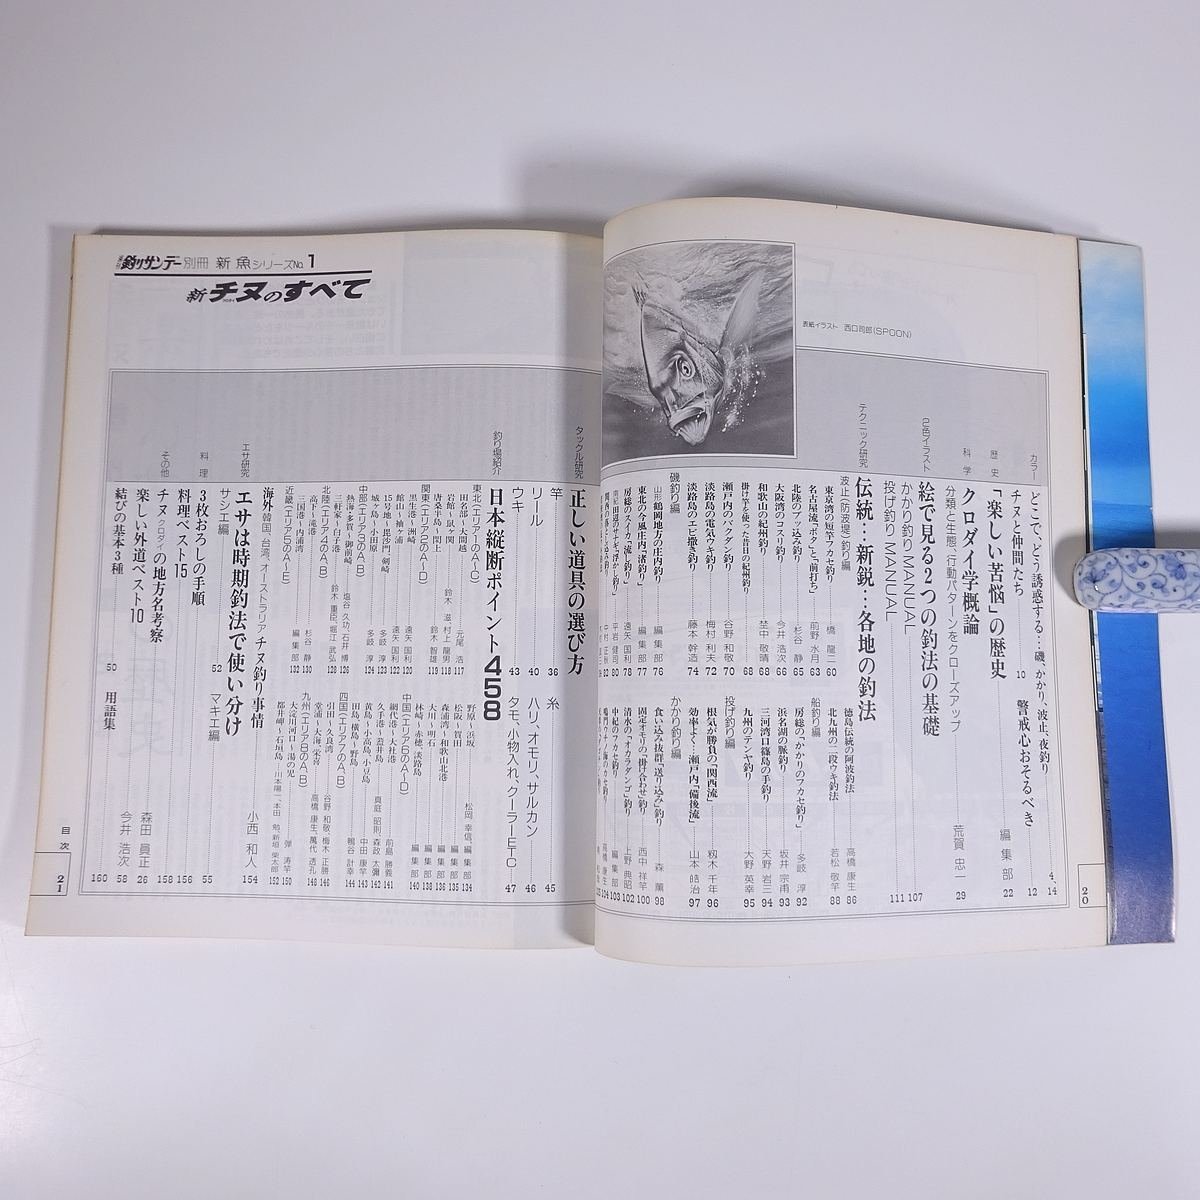 表紙イラスト 西口司郎(SPOON)
カラー
どこで、どう誘惑する…磯、かかり、波止、夜釣り 4、14
チヌと仲間たち 10
警戒心おそるべき 12
歴史
「楽しい苦悩」の歴史 編集部 22
科学
クロダイ学概論
分類と生態、行動パターンをクローズアップ 荒賀忠一 29
2色イラスト
絵で見る2つの釣法の基礎
かかり釣り MANUAL 107
投げ釣り MANUAL 111
テクニック研究
伝統…新鋭…各地の釣法
波止(防波堤)釣り編
東京湾の短竿フカセ釣り 橋龍二 60
名古屋流「ボタ」と「前打ち」 前野水月 63
北陸のブッ込み釣り 杉谷静 65
大阪湾のコスリ釣り 今井浩次 66
和歌山の紀州釣り 埜中敬晴 68
掛け竿を使った昔日の紀州釣り 68
瀬戸内のバクダン釣り 谷野和敬 70
淡路島の電気ウキ釣り 梅村利夫 72
淡路島のエビ撒き釣り 藤本幹造 74
磯釣り編
山形・鶴岡地方の庄内釣り 編集部 76
東北の今風庄内「渚釣り」 編集部 77
房総のスイカ「流し釣り」 遠矢国利 78
徳島伝統の阿波釣法 高橋康生 86
北九州の二段ウキ釣法 若松敬竿 88
船釣り編
房総の「かかりのフカセ釣り」 多岐淳 92
浜名湖の脈釣り 坂井宗甫 93
三河湾口篠島の手釣り 天野岩三 94
九州のテンヤ釣り 大野英幸 95
投げ釣り編
根気が勝負の「関西流」 籾木千年 96
効率よく…瀬戸内「備後流」 山本皓治 97
かかり釣り編
食い込み抜群「送り込み」釣り 森薫 98
固定オモリの「掛け合わせ」釣り 西中祥竿 100
清水の「オカラダンゴ」釣り 上野典昭 102
中紀のフカセ釣り 編集部 103
20
釣りサンデー別冊 新 魚シリーズNo.1
新 チヌのすべて
タックル研究
正しい道具の選び方
竿 36
リール 40
ウキ 43
糸 45
ハリ、オモリ、サルカン 46
タモ、小物入れ、クーラーETC 47
釣り場紹介
日本縦断ポイント458
東北(エリア1のA〜C)
田名部〜大間越 元尾浩 117
岩館〜鼠ヶ関 鈴木滋、村上龍男 118
唐桑半島〜閖上 鈴木智雄 119
関東(エリア2のA〜D)
黒生港〜洲崎 遠矢国利 120
館山〜袖ヶ浦 遠矢国利 122
15号地〜毘沙門、剱崎 多岐淳 123
城ヶ島〜小田原 多岐淳 124
中部(エリア3のA、B)
熱海〜多賀〜御前崎 塩谷久功、石井博 126
三軒家〜白子港 鈴木重臣、堀江武弘 128
北陸(エリア4のA、B)
高下〜滝港 杉谷静 130
三国港〜内浦湾 編集部 132
近畿(エリア5のA〜E)
野原〜浜坂 松岡幸信、編集部 134
松阪〜賀田 編集部 135
森浦湾〜和歌山北港 編集部 136
大川〜明石 編集部 138
林崎〜赤穂、淡路島 編集部 140
中国(エリア6のA〜D)
網代港〜大社港 前島勝義 141
久手港〜蓋井島 森政太瀰 142
黄島〜小高島、小豆島 真庭昭則、中田康竿 143
田島、横島〜野島 鴨谷計幸 144
四国(エリア7のA、B)
引田〜久良湾 谷野和敬、梅木正勝 146
堂浦〜大海、栄喜 高橋康生、萬代透孔 148
九州(エリア8のA、B)
大淀川河口〜湯の児 弾涛竿 150
都井岬〜石垣島 川本陽一、本田勉、新垣柴太郎 152
海外 韓国、台湾、オーストラリア チヌ釣り事情 154
エサ研究
エサは時期釣法で使い分け
サシエ編 52
マキエ編 小西和人 154
料理
3枚おろしの手順 55
料理ベスト15 156
その他
チヌ クロダイの地方名考察 158
楽しい外道ベスト10 森田真正 26
結びの基本3種 今井浩次 58
50
用語集 160
目次
21